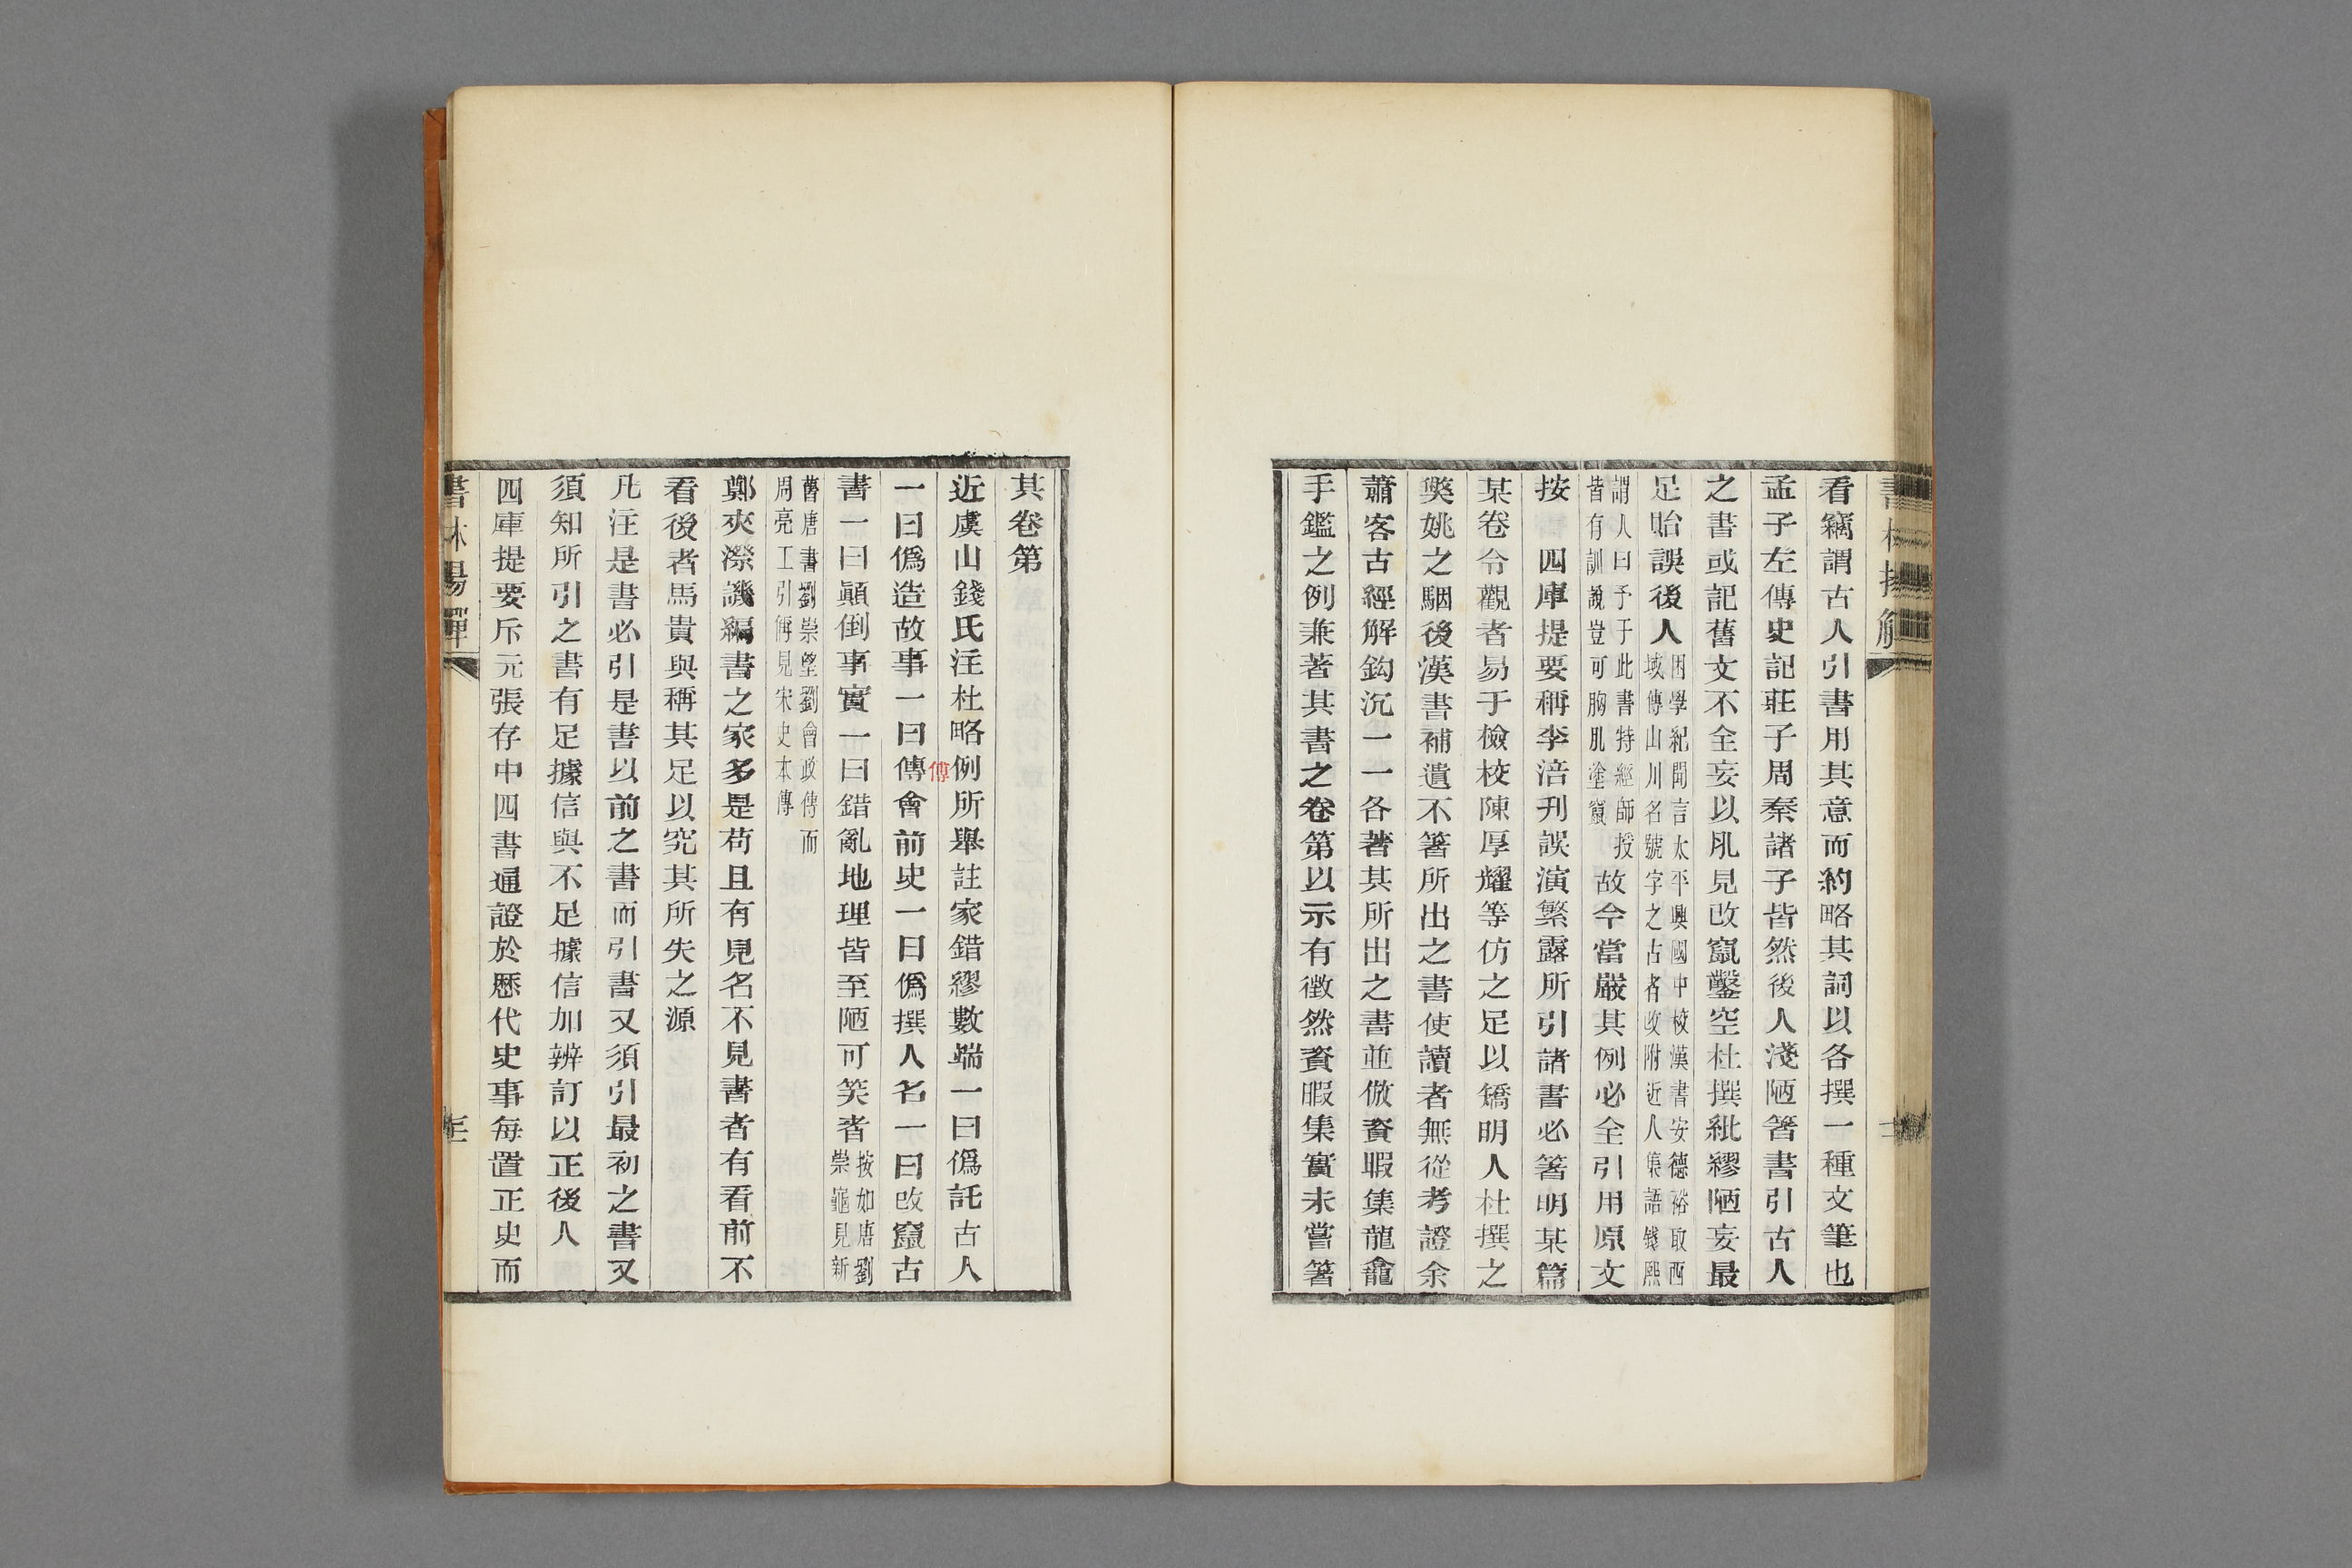 看竊謂古人引書用其意而約略其詞以各撰一種文筆也
孟子左傳史記莊子周秦諸子皆然後人淺陋箸書引古人
之書或記舊文不全妄以肊見改竄鑿空杜撰紕繆陋妄最
足貽誤後人
困學紀聞言太平興國中校漢書安德裕取西
域傳山川名號字之古者改附近人集語錢熙
謂人曰予于此書特經師授
皆有訓說豈可胸肊塗竄
故今當嚴其例必全引用原文
按 四庫提要稱李涪刊誤演繁露所引諸書必箸明某篇
某卷令觀者易于檢校陳厚耀等仿之足以矯明人杜撰之
獘姚之駰後漢書補遺不箸所出之書使讀者無從考證余
蕭客古經解鈎沉一一各著其所出之書並倣資暇集龍龕
手鑑之例兼著其書之卷第以示有徵然資暇集實未嘗箸
其卷第
近虞山錢氏注杜略例所舉註家錯繆數端一曰僞託古人
一曰僞造故事一曰傳會前史一曰僞撰人名一曰改竄古
傅
書一曰顚倒事實一曰錯亂地理皆至陋可笑者
按如唐劉
崇龜見新
舊唐書劉崇望劉會政傳而
周亮工引侮見宋史本傳
鄭夾漈譏編書之家多是苟且有見名不見書者有看前不
看後者馬貴與稱其足以究其所失之源
凡注是書必引是書以前之書而引書又須引最初之書又
須知所引之書有足據信與不足據信加辨訂以正後人
四庫提要斥元張存中四書通證於歷代史事每置正史而
書林揚觶